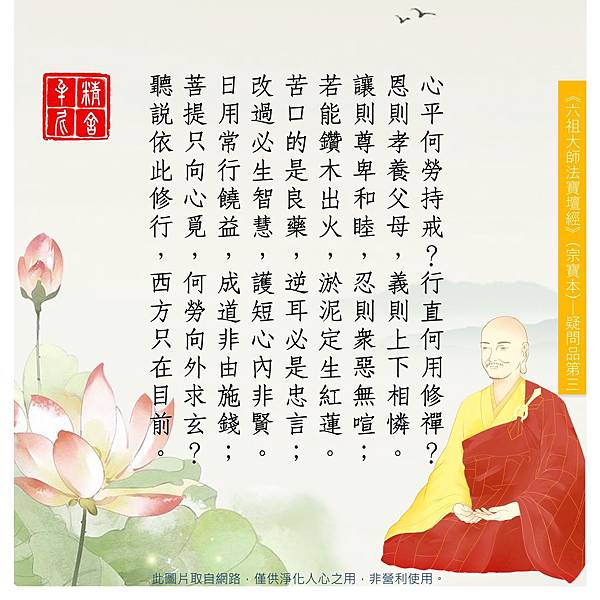 《六祖大師法寶壇經》(宗寶本)─疑問品第三
心平何勞持戒?行直何用修禪?
恩則孝養父母,義則上下相憐。
讓則尊卑和睦,忍則衆惡無喧;
若能鑽木出火,淤泥定生紅蓮。
苦口的是良藥,逆耳必是忠言;
改過必生智慧,護短心內非賢。
日用常行饒益,成道非由施錢;
菩提只向心覓,何勞向外求玄?
聽說依此修行,西方只在目前。
精舍
此圖片取自網路,僅供淨化人心之用,非營利使用。